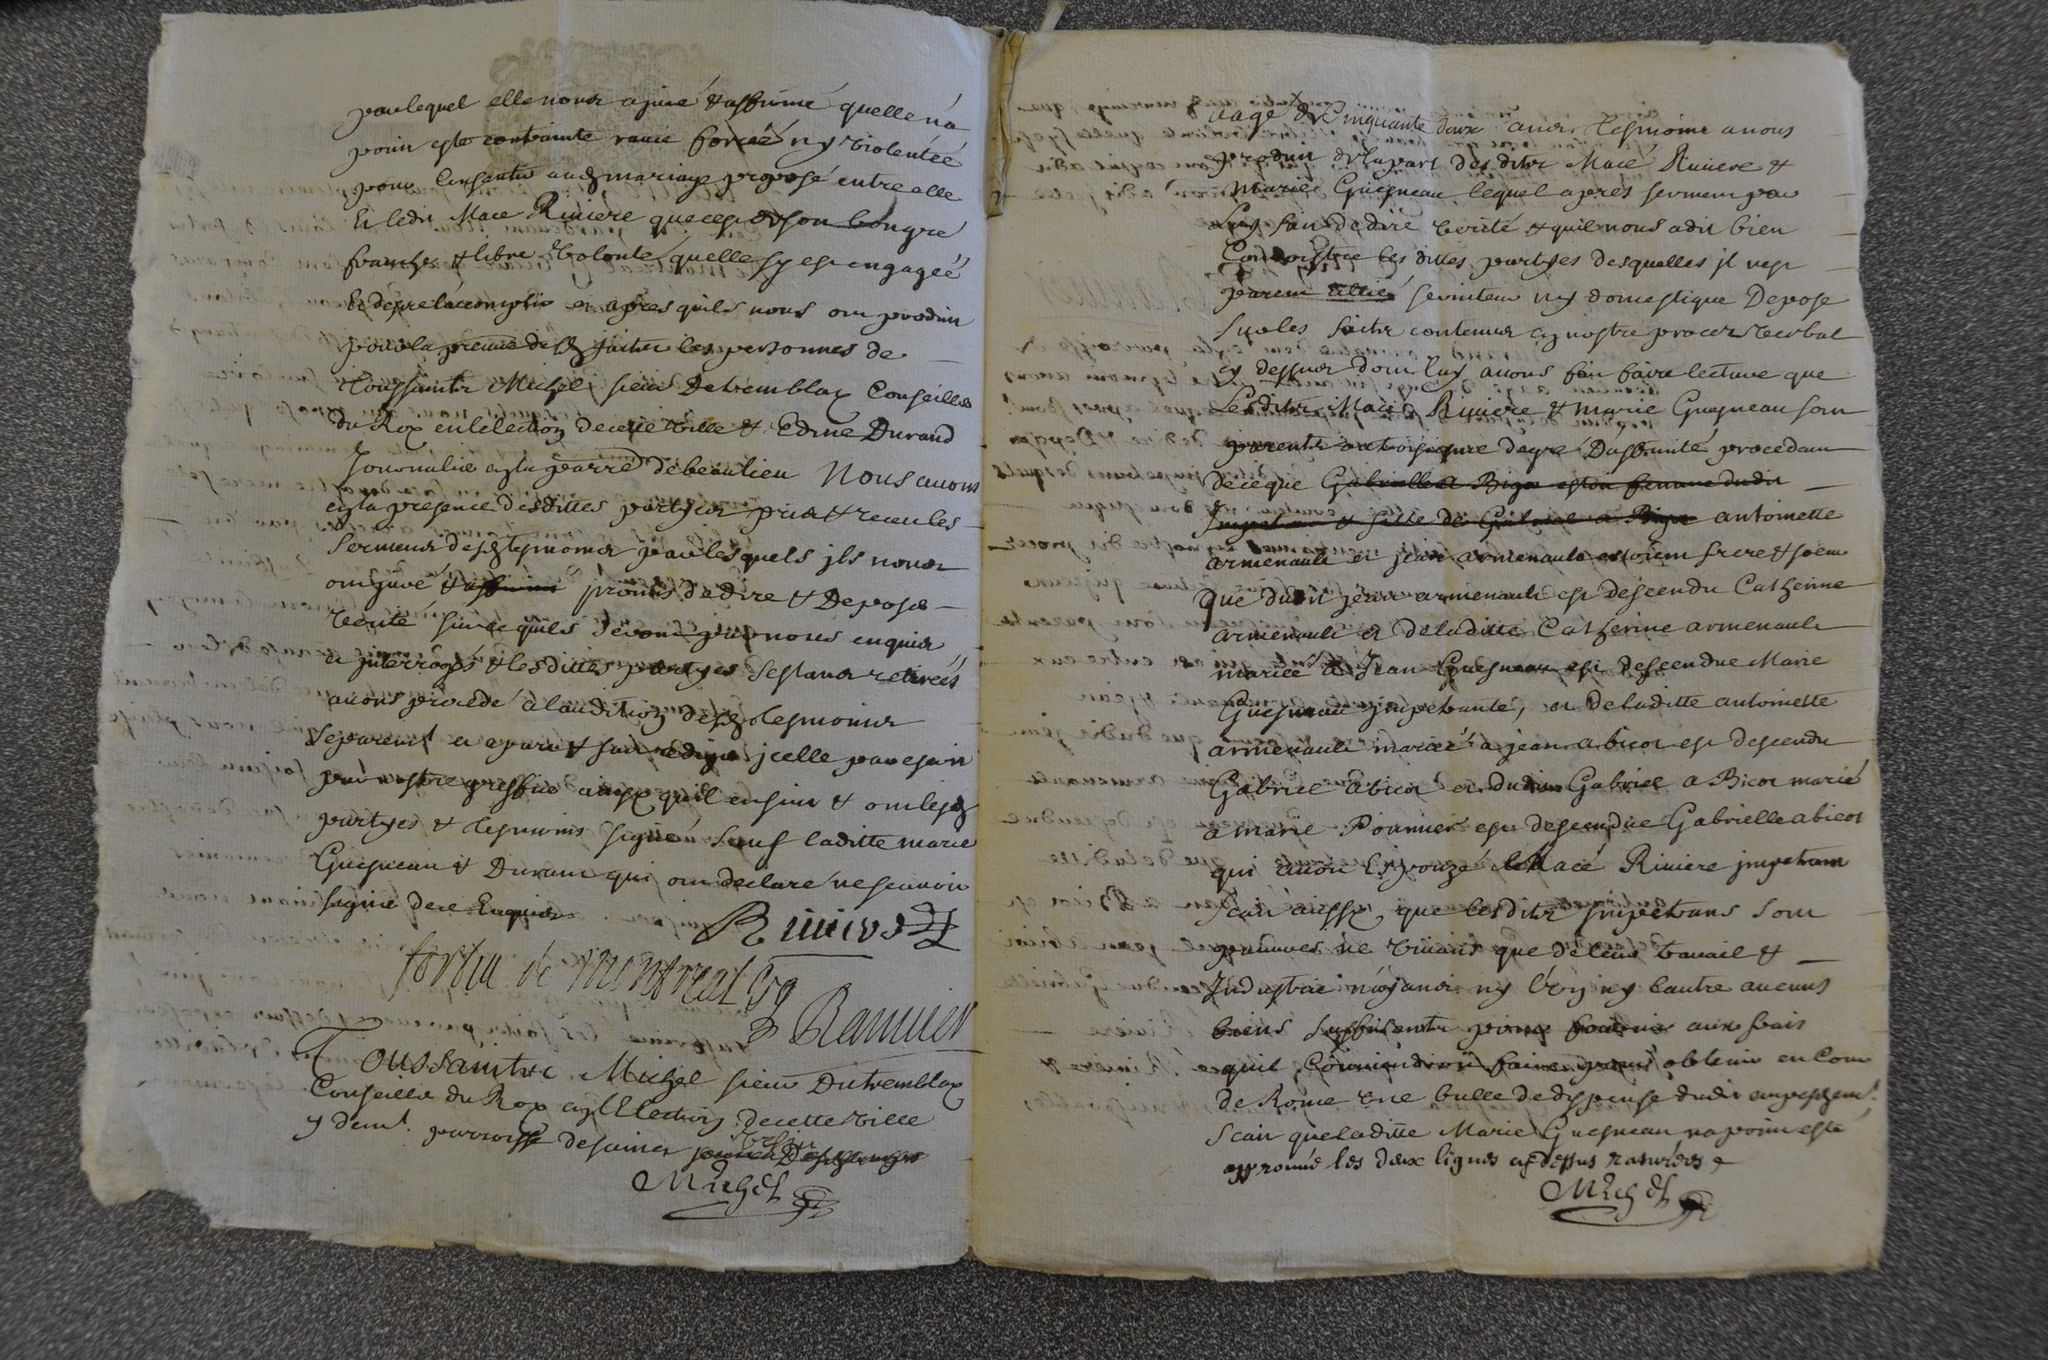 par lequel elle nous a juré & affirmé quelle na
point esté contrainte ravie forcée ny violentée
pour consentir aud mariage proposé entre elle
Et ledit Macé Riviere que cest de son bongré
franche & libre volonté quelle sy est engagée
et apres quils nous ont produit
pour la preuve desd faits les personnes de
Toussaintz Michel sieur Detremblay Conseiller
du Roy en lelection de cette ville & Edme Durand
Journalier en la parr debeaulieu Nous avons
en la presence desdittes partyes pris & receu les
serments desd tesmoins par lesquels jls nous
ont juré & affirmé promis de dire & Deposer
verité sur ce quils seront par nous enquis
et jnterrogés & lesdittes partyes sestans retirées
avons procédé à laudition desd tesmoins
separemt et apart & fait rediger jcelle par escrit
par nostre greffier ainsy quil ensuit & ont lesd
partyes & tesmoins signé sauf laditte marie
Guesneau & Durant qui ont declaré ne scavoir
signer de ce Enquis
Riviere
de montreal
Rammier
Toussaintz Michel sieur Dutremblay
Conseiller du Roy en lElection de cette ville
y demt parroisse de sainct
Michel
aagé de Cinquante deux ans tesmoin a nous
produit de la part desdits Macé Riviere &
Marie Guesneau lequel apres serment par
Luy fait de dire verité & quil nous a dit bien
Connoistre les dittes partyes desquelles jl nest
parent allié serviteur ny domestique Depose
sur les faits contenus en nostre procez verbal
cy dessus dont luy avons fait faire lecture que
Lesdits Macé Riviere & marie Guesneau sont
parents au troisieme degré Daffinité procedant
de ce que Gabrielle a Bigot estoit femme dudit
Impetrant & fille de Gabriel a Bigot antoinette
armenault et jean armenault estoient frere & soeur
que dudit jean armenault est descendu Catherine
armenault et de laditte Catherine armenault
mariée a Jean Guesneau est descendue Marie
Guesneau jmpetrante, et de laditte antoinette
armenault mariée a jean abicot est descendu
Gabriel abicot et dudit Gabriel a Bicot marié
a marie Pommier est descendue Gabrielle abicot
qui avoit Espouzé le Macé Riviere jmpetrant
Scait aussy que lesdits jmpetrans sont
pauvres ne vivans que de leur travail &
Industrie nayans ny lun ny lautre aucuns
biens suffisants pour fournir aux frais
quil conviendroit faire pour obtenir en Cour
de Rome une bulle de dispense dudit empeschemt
Scait que laditte Marie Guesneau na point esté
approuvé les deux lignes cy dessus raturées
Michel